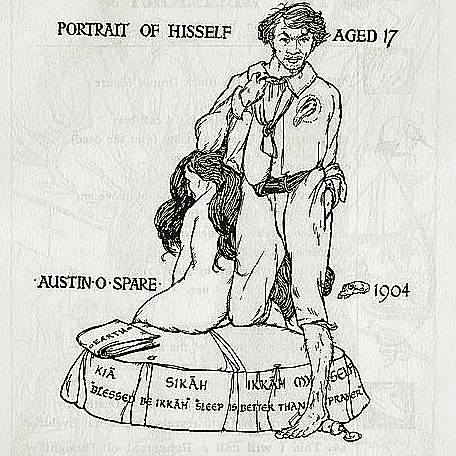 PORTRAIT OF HISSELF AGED 17
·AUSTIN·O·SPARE· 1904
KIĀ SIKĀH IKKĀH (MY) SELF
BLESSED BE IKKĀH SLEEP IS BETTER THAN PRAYER